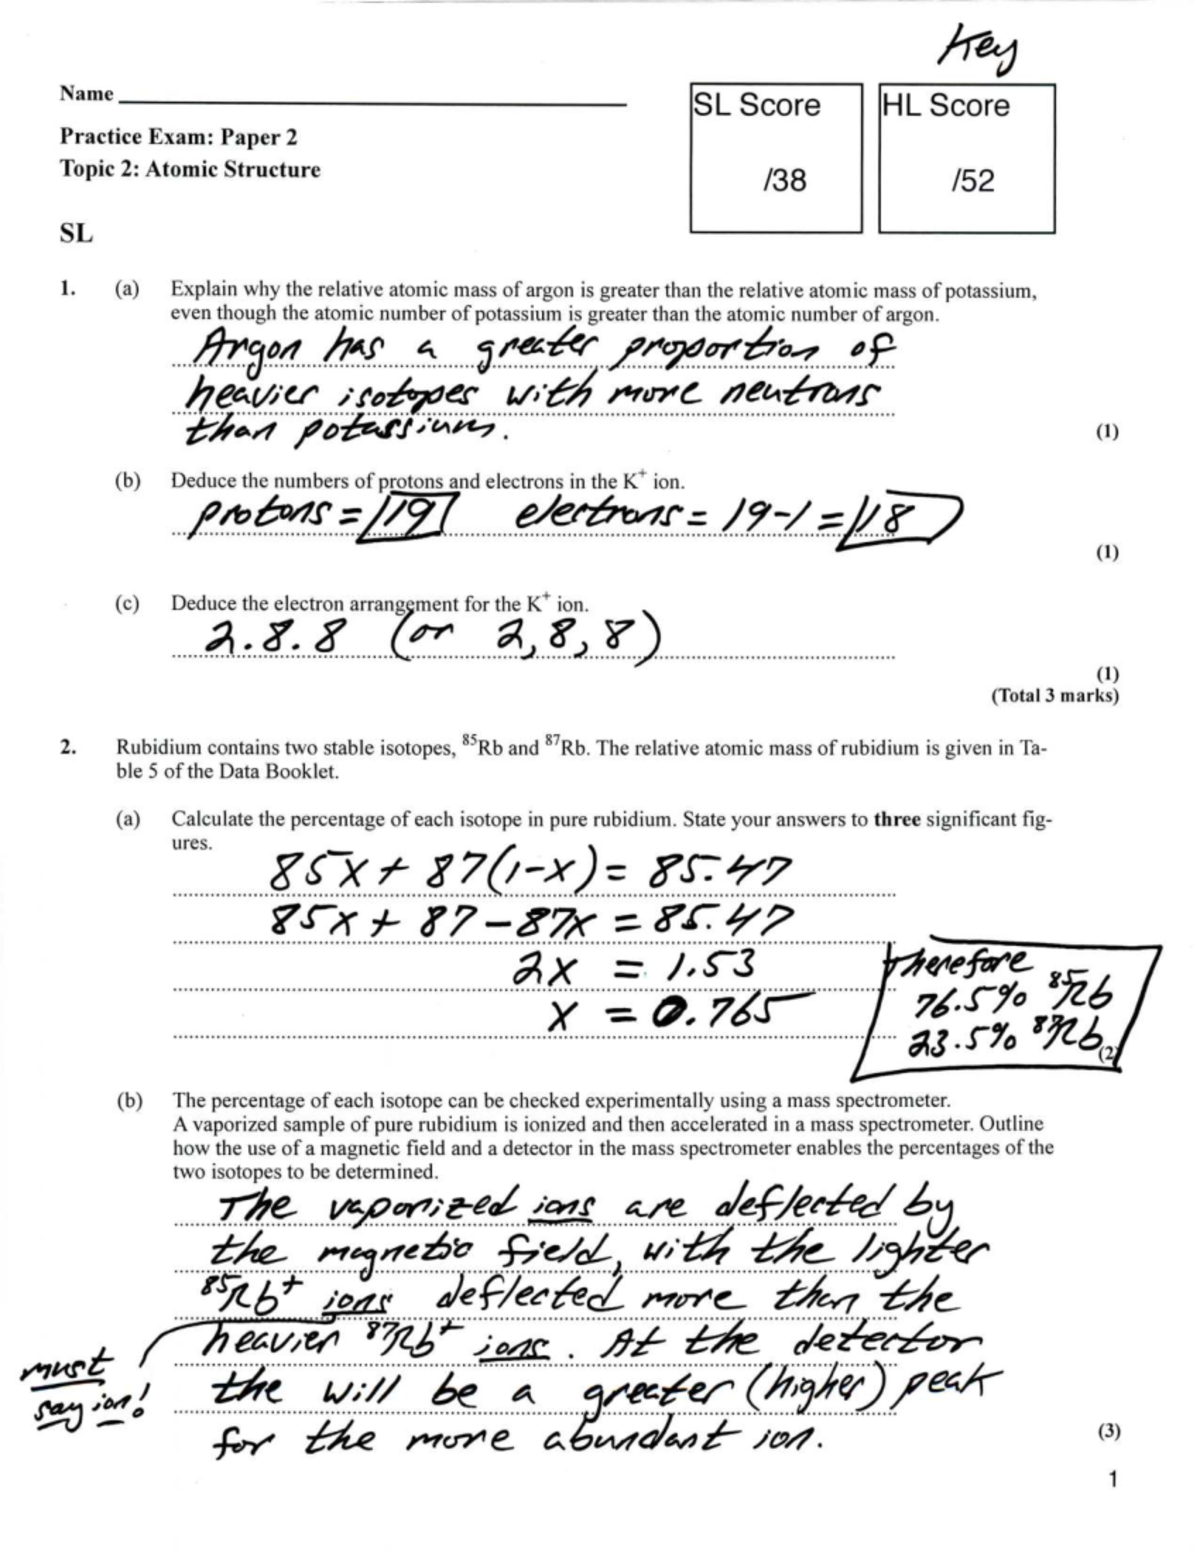 Key
Name
SL Score
HL Score
Practice Exam: Paper 2
Topic 2: Atomic Structure
/38
/52
SL
1. (a) Explain why the relative atomic mass of argon is greater than the relative atomic mass of potassium,
even though the atomic number of potassium is greater than the atomic number of argon.
Argon has a greater proportion of
heavier isotopes with more neutrons
than potassium.
(1)
(b) Deduce the numbers of protons and electrons in the K⁺ ion.
protons = 19 electrons = 19-1 = 18
(1)
(c) Deduce the electron arrangement for the K⁺ ion.
2.8.8 (or 2,8,8)
(1)
(Total 3 marks)
2. Rubidium contains two stable isotopes, ⁸⁵Rb and ⁸⁷Rb. The relative atomic mass of rubidium is given in Ta-
ble 5 of the Data Booklet.
(a) Calculate the percentage of each isotope in pure rubidium. State your answers to three significant fig-
ures.
85x + 87(1-x) = 85.47
85x + 87 - 87x = 85.47
2x = 1.53
x = 0.765
therefore
76.5% ⁸⁵Rb
23.5% ⁸⁷Rb
(2)
(b) The percentage of each isotope can be checked experimentally using a mass spectrometer.
A vaporized sample of pure rubidium is ionized and then accelerated in a mass spectrometer. Outline
how the use of a magnetic field and a detector in the mass spectrometer enables the percentages of the
two isotopes to be determined.
The vaporized ions are deflected by
the magnetic field, with the lighter
⁸⁵Rb⁺ ions deflected more than the
heavier ⁸⁷Rb⁺ ions. At the detector
the will be a greater (higher) peak
for the more abundant ion.
must
say ion!
(3)
1